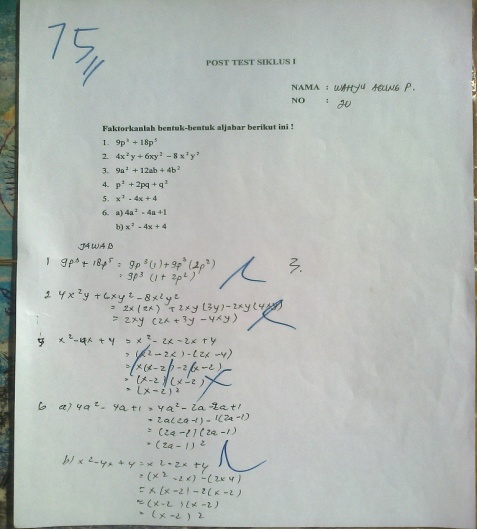 75
POST TEST SIKLUS I
NAMA : WAHYU AGUNG P.
NO : 20
Faktorkanlah bentuk-bentuk aljabar berikut ini !
1. 9p³ + 18p⁵
2. 4x²y + 6xy² – 8x²y²
3. 9a² + 12ab + 4b²
4. p² + 2pq + q²
5. x² - 4x + 4
6. a) 4a² - 4a +1
b) x² - 4x + 4
JAWAB
1 9p³ + 18p⁵ = 9p³(1) + 9p³(2p²)
= 9p³ (1 + 2p²)
3.
2 4x²y + 6xy² - 8x²y²
= 2x(2x) + 2xy(3y) - 2xy(4xy)
= 2xy (2x + 3y - 4xy)
x² - 4x + 4 = x² - 2x - 2x + 4
= (x² - 2x) - (2x - 4)
= x(x-2) - 2(x-2)
= (x-2) (x-2)
= (x-2)²
6 a) 4a² - 4a + 1 = 4a² - 2a - 2a + 1
= 2a(2a-1) - 1(2a-1)
= (2a-1)(2a-1)
= (2a-1)²
b) x² - 4x + 4 = x² - 2x + 4
= (x² - 2x) - (2x4)
= x(x-2) - 2(x-2)
= (x-2)(x-2)
= (x-2)²